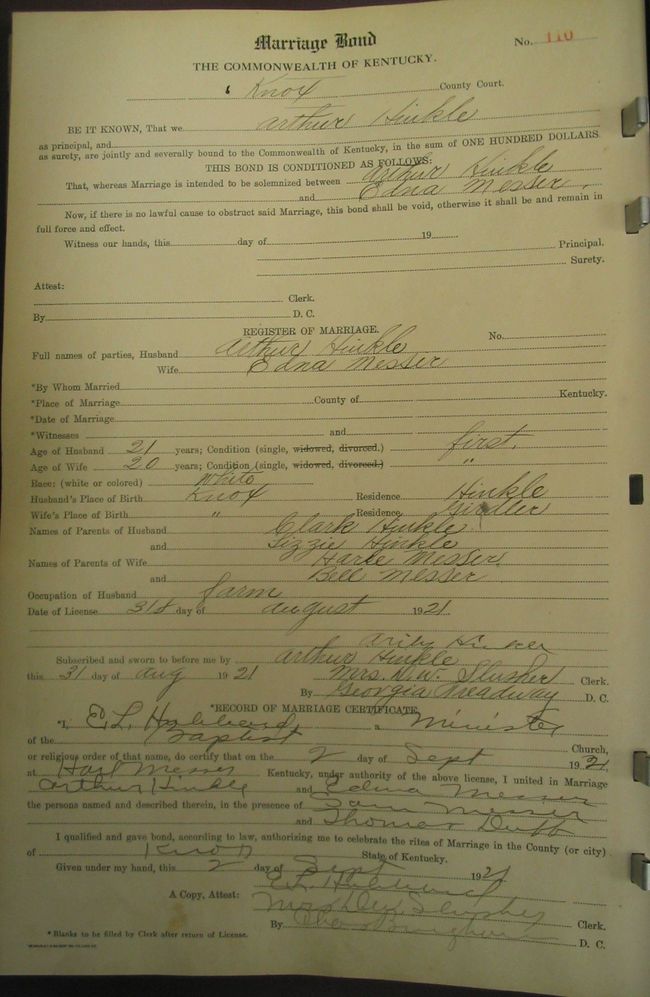 Marriage Bond
No. 110
THE COMMONWEALTH OF KENTUCKY.
Knox County Court.
BE IT KNOWN, That we Arthur Hinkle
as principal, and
as surety, are jointly and severally bound to the Commonwealth of Kentucky, in the sum of ONE HUNDRED DOLLARS.
THIS BOND IS CONDITIONED AS FOLLOWS:
That, whereas Marriage is intended to be solemnized between Arthur Hinkle
and Edna Messer,
Now, if there is no lawful cause to obstruct said Marriage, this bond shall be void, otherwise it shall be and remain in
full force and effect.
Witness our hands, this day of 19
Principal.
Surety.
Attest:
Clerk.
By D. C.
REGISTER OF MARRIAGE.
No.
Full names of parties, Husband Arthur Hinkle
Wife Edna Messer
*By Whom Married
*Place of Marriage County of Kentucky.
*Date of Marriage
*Witnesses and
Age of Husband 21 years; Condition (single, widowed, divorced.) first.
Age of Wife 20 years; Condition (single, widowed, divorced.) "
Race: (white or colored) White
Husband's Place of Birth Knox Residence Hinkle
Wife's Place of Birth " Residence Girdler
Names of Parents of Husband Clark Hinkle
and Lizzie Hinkle
Names of Parents of Wife Harte Messer.
and Bell Messer
Occupation of Husband farm
Date of License 31st day of August 1921
Subscribed and sworn to before me by Arthur Hinkle
this 31 day of Aug 1921 Mrs. D.W. Slusher Clerk.
By Georgia Treadway D. C.
*RECORD OF MARRIAGE CERTIFICATE.
*I, E. L. Hubbard a Minister
of the Baptist Church,
or religious order of that name, do certify that on the 2 day of Sept 1921,
at Hart Messer Kentucky, under authority of the above license, I united in Marriage
Arthur Hinkle and Edna Messer
the persons named and described therein, in the presence of Sam Messer
and Thomas
I qualified and gave bond, according to law, authorizing me to celebrate the rites of Marriage in the County (or city)
of Knox State of Kentucky.
Given under my hand, this 2 day of Sept 1921
E. L. Hubbard
A Copy, Attest: Mrs D.W. Slusher Clerk.
By D. C.
*Blanks to be filled by Clerk after return of License.